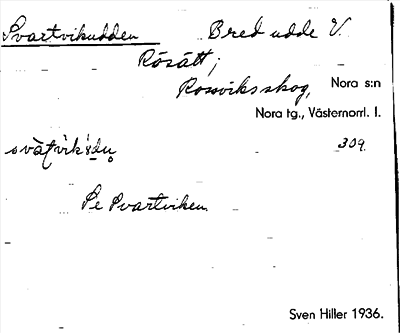 Svartvikudden Bred udde V.
Rösått;
Rossviks skog, Nora s:n
Nora tg., Västernorrl. l.
309.
Se Svartviken.
Sven Hiller 1936.